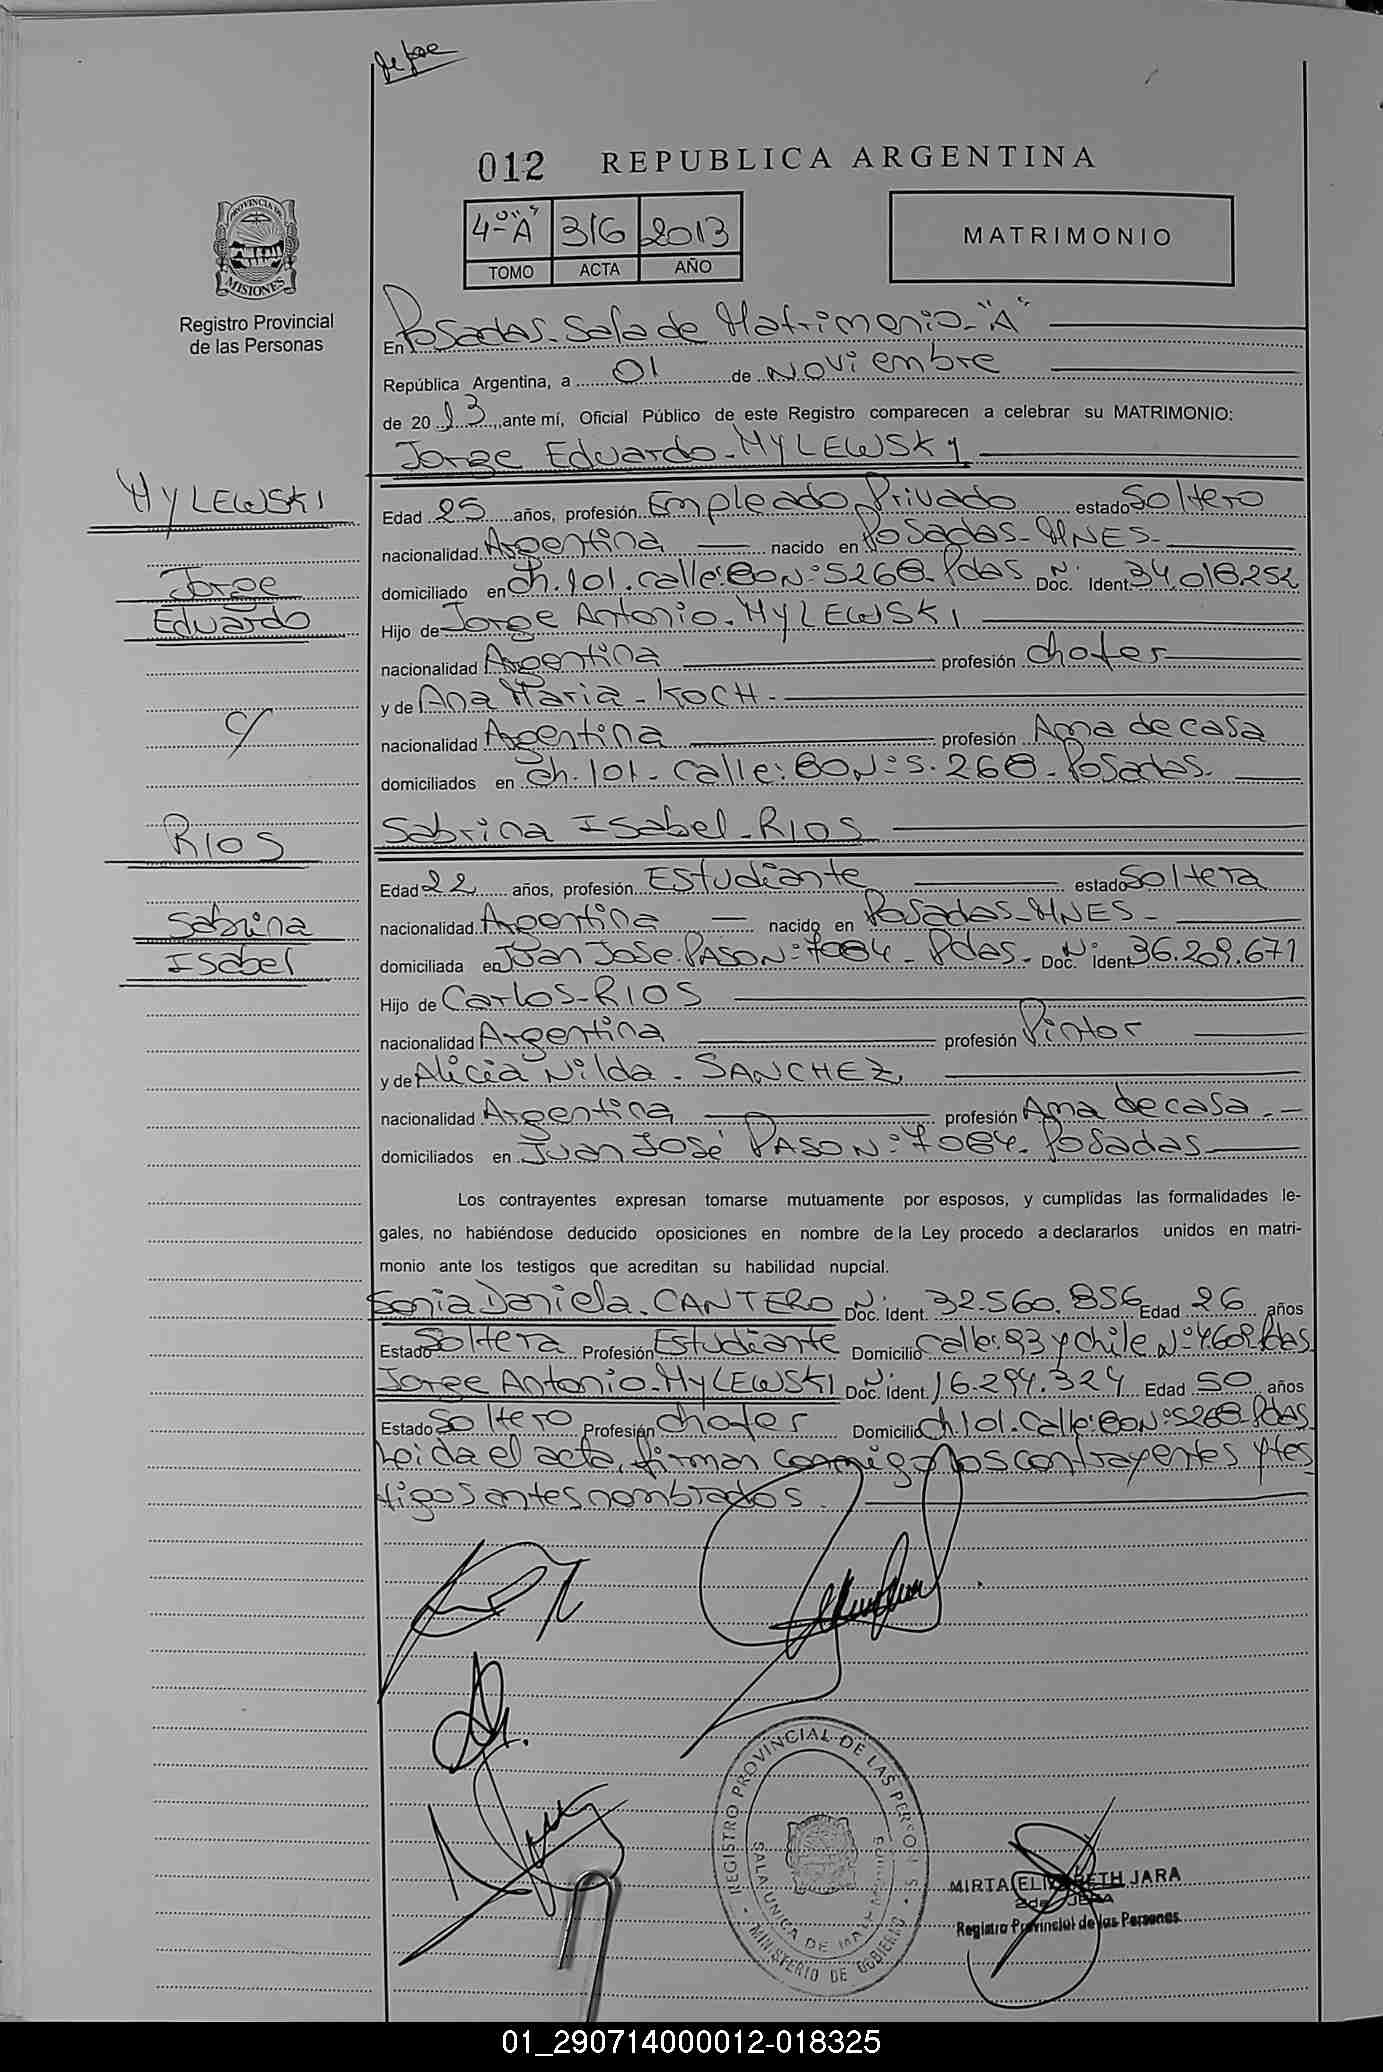 012 REPUBLICA ARGENTINA
4º "A" 316 2013
TOMO ACTA AÑO
MATRIMONIO
PROVINCIA DE MISIONES
Registro Provincial
de las Personas
En Posadas. Sala de Matrimonio - "A"
República Argentina, a 01 de Noviembre
de 2013, ante mí, Oficial Público de este Registro comparecen a celebrar su MATRIMONIO:
Jorge Eduardo - MYLEWSKY
MYLEWSKI
Edad 25 años, profesión Empleado Privado estado Soltero
nacionalidad Argentina nacido en Posadas - MNES -
Jorge
domiciliado en Ch. 101. Calle: 80 Nº: 5268 - Pdas Doc. Nº Ident. 34.018.252
Eduardo
Hijo de Jorge Antonio - MYLEWSKI
nacionalidad Argentina profesión chofer
y de Ana Maria - KOCH -
c/
nacionalidad Argentina profesión Ama de casa
domiciliados en Ch. 101 - Calle: 80 Nº: 5.268 - Posadas.
RIOS
Sabrina Isabel - RIOS
Edad 22 años, profesión Estudiante estado Soltera
Sabrina
nacionalidad Argentina nacido en Posadas - MNES -
Isabel
domiciliada en Juan Jose PASO Nº: 7084 - Pdas - Doc. Nº Ident. 36.209.671
Hijo de Carlos - RIOS
nacionalidad Argentina profesión Pintor
y de Alicia Nilda - SANCHEZ
nacionalidad Argentina profesión Ama de casa. -
domiciliados en Juan José PASO Nº: 7084 - Posadas
Los contrayentes expresan tomarse mutuamente por esposos, y cumplidas las formalidades le-
gales, no habiéndose deducido oposiciones en nombre de la Ley procedo a declararlos unidos en matri-
monio ante los testigos que acreditan su habilidad nupcial.
Sonia Daniela - CANTERO Doc. Nº Ident. 32.560.856 Edad 26 años
Estado Soltera Profesión Estudiante Domicilio Calle: 93 y Chile Nº 4.609 Pdas.
Jorge Antonio - MYLEWSKI Doc. Nº Ident. 16.294.324 Edad 50 años
Estado Soltero Profesión chofer Domicilio Ch. 101. Calle: 80 Nº: 5268 - Pdas
Leida el acta, firman conmigo los contrayentes y tes
tigos antes nombrados
REGISTRO PROVINCIAL DE LAS PERSONAS
MINISTERIO DE GOBIERNO
MIRTA ELIZABETH JARA
Registro Provincial de las Personas
01_290714000012-018325